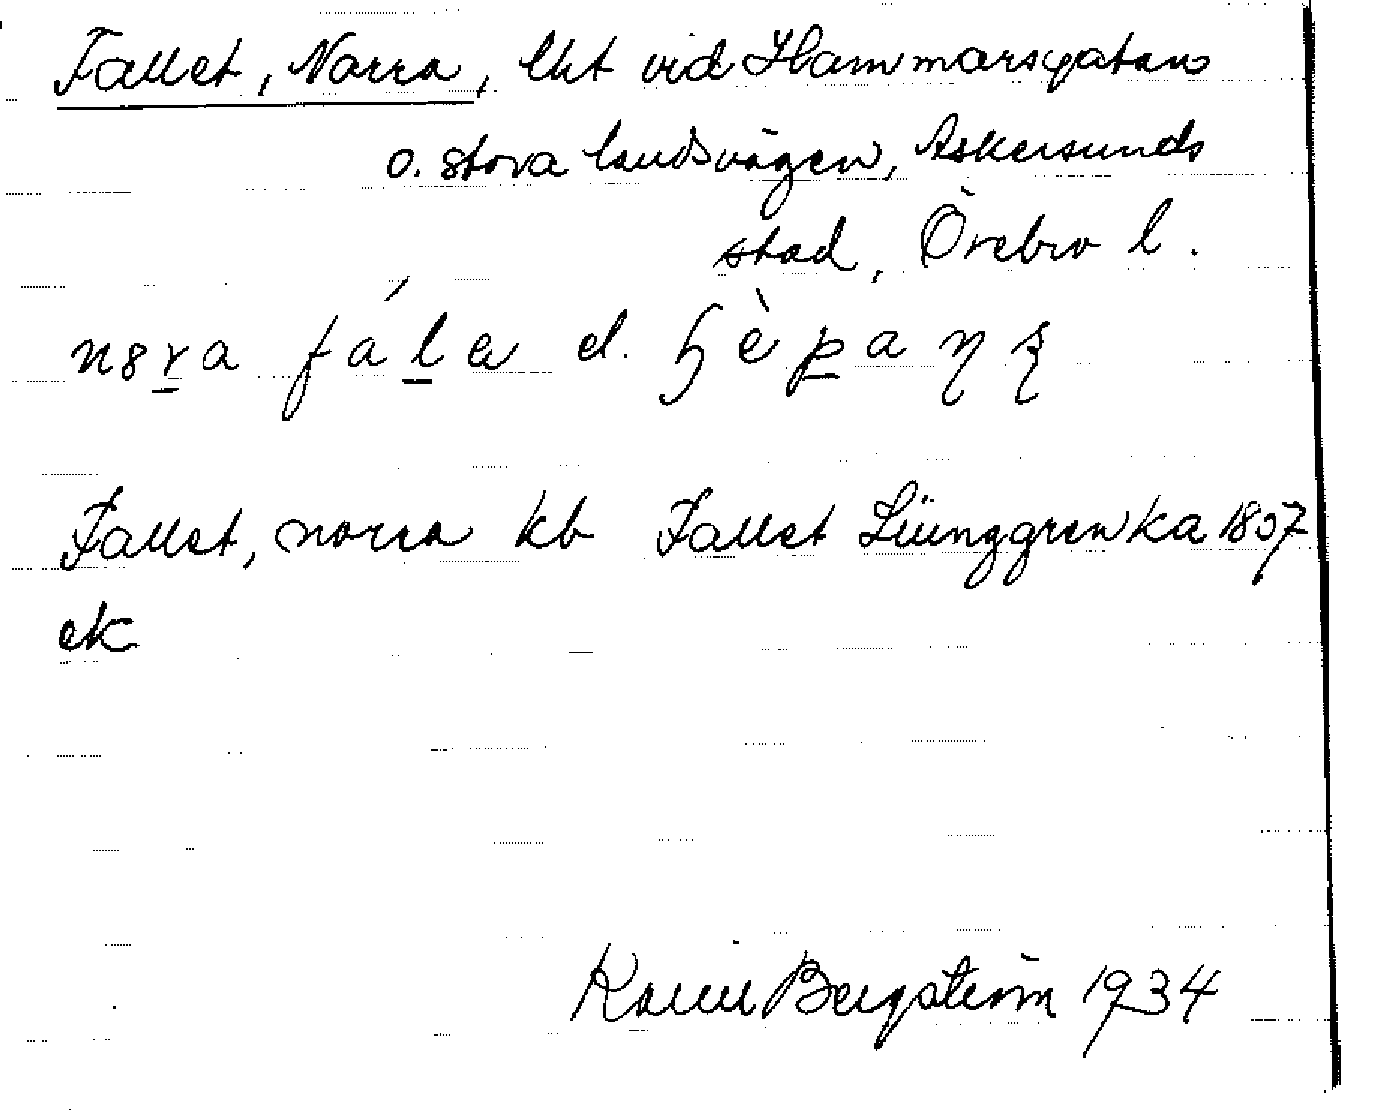 Fallet, Norra, lht vid Hammarsgatan
o. stora landsvägen, Askersunds
stad, Örebro l.
Fallet, norra kb Fallet Liunggren ka 1807
ek
Karin Bergström 1934